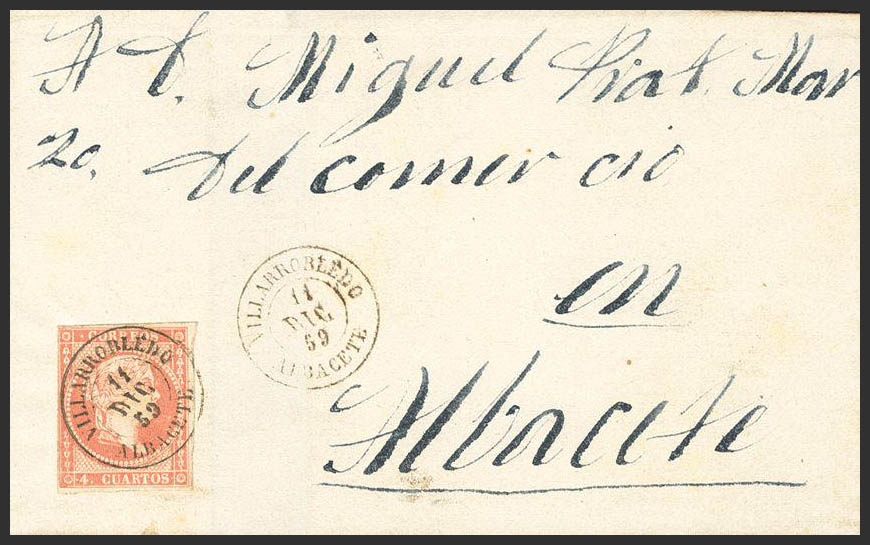 A D. Miguel Piat. Mar
zo. Del comercio
en
Albacete
VILLARROBLEDO
11
DIC
59
ALBACETE
CORREOS
VILLARROBLEDO
11
DIC
59
ALBACETE
4 CUARTOS